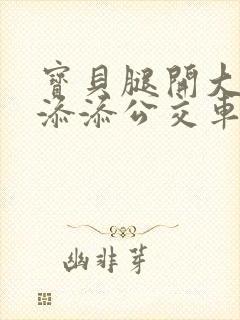 寶貝腿開大
添添公交車
幽非芽